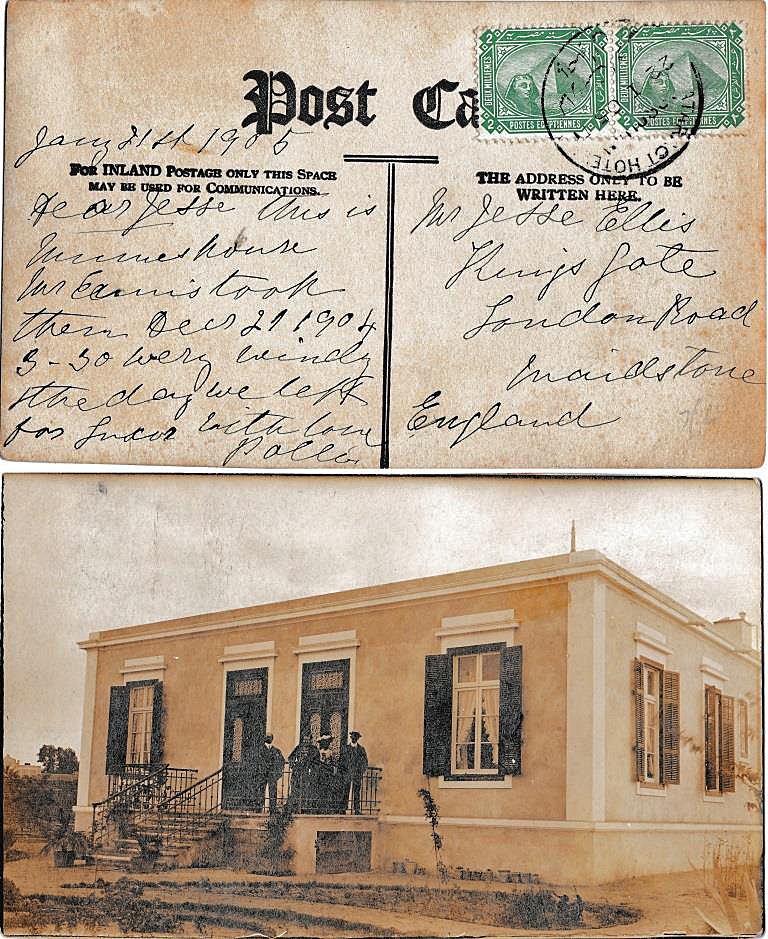 Post Ca
2 2
DEUX MILLIEMES
POSTES EGYPTIENNES
2 2
DEUX MILLIEMES
POSTES EGYPTIENNES
HOTE
Jany 21st 1905
FOR INLAND POSTAGE ONLY THIS SPACE
MAY BE USED FOR COMMUNICATIONS.
THE ADDRESS ONLY TO BE
WRITTEN HERE.
Dear Jesse this is
Minnies house
Mr Ennis took
them Decr 21 1904
3-30 very windy
the day we left
for Luxor With love
Mr Jesse Ellis
Kings Gate
London Road
Maidstone
England